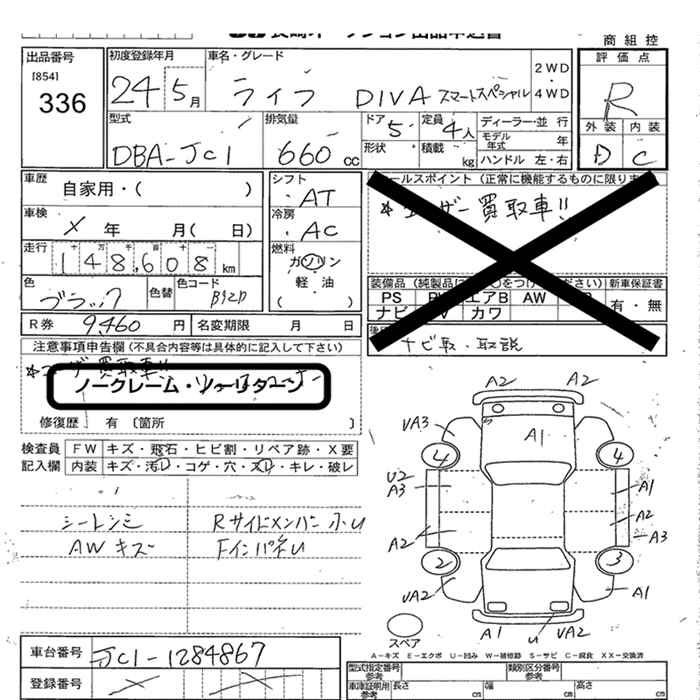 長崎オークション出品申込書
商組控
出品番号
[854]
336
初度登録年月
24 5月
車名・グレード
ライフ DIVA スマートスペシャル
2WD
・
4WD
評価点
R
外装 内装
D C
型式
DBA-JC1
排気量
660 cc
ドア 5
形状
定員 4人
積載 kg
ディーラー・並行
モデル年式 年
ハンドル 左・右
車歴
自家用・( )
車検
× 年 月( 日)
走行
十万千百十一
148,608 km
色
ブラック
色替
色コード
B92P
シフト
AT
冷房
AC
燃料
ガソリン
・
軽油
( )
セールスポイント (正常に機能するものに限ります)
買取車!!
装備品 (純製品に をつけ ださい) 新車保証書
PS エアB AW
ナビ V カワ
有・無
R券 9,460 円
名変期限 月 日
ナビ取・取説
注意事項申告欄 (不具合内容等は具体的に記入して下さい)
買取車!!
ノークレーム・ノーリターン
修復歴 有 〔箇所 〕
検査員
記入欄
FW キズ・飛石・ヒビ割・リペア跡・X要
内装 キズ・汚レ・コゲ・穴・スレ・キレ・破レ
シートシミ
AW キズ
Rサイドメンバー 小U
Fインパネ U
A2 A2
UA3
A1
4 4
U2
A3
A1
A2
A2
A3
2 3
UA2
A1
スペア
A1 U UA2
A-キズ E-エクボ U-凹み W-補修跡 S-サビ C-腐食 XX-交換済
車台番号
JC1-1284867
登録番号
型式指定番号
参考
類別区分番号
参考
車庫証明用
参考
長さ cm
幅 cm
高さ cm